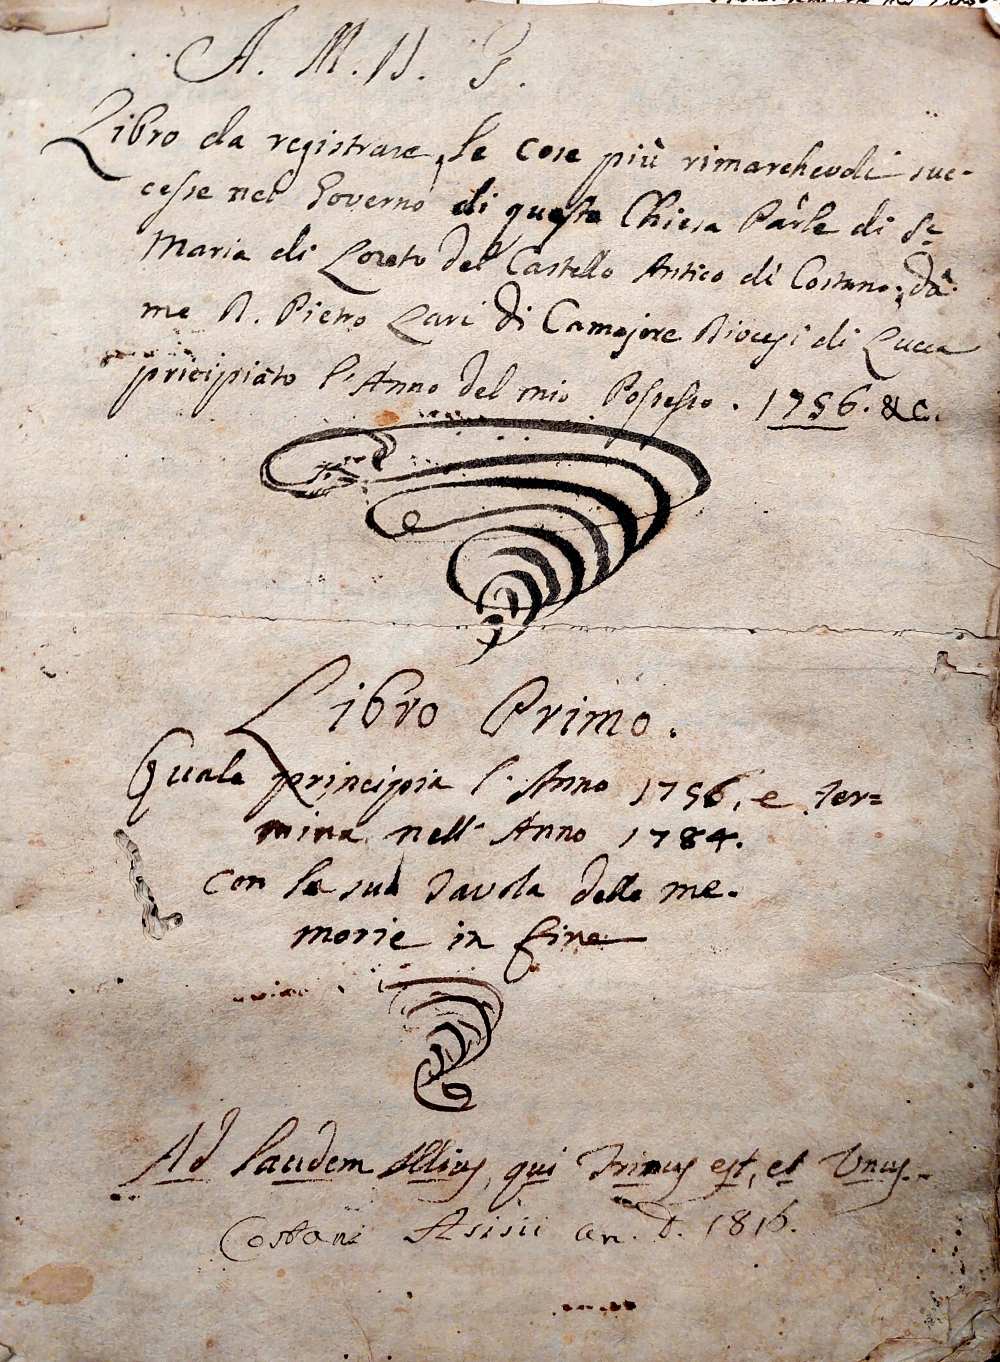 A. M. D. G.
Libro da registrare le cose più rimarchevoli suc-
cesse nel Governo di questa Chiesa Par̃le di S.
Maria di Loreto del Castello Antico di Costano, dà
me D. Pietro Lari di Camajore Diocesi di Lucca
pricipiato l'Anno del mio Possesso. 1756. &c.
Libro Primo.
Quale principia l'Anno 1756, e ter=
mina nell' Anno 1784.
con la sua Tavola delle me-
morie in fine
Ad laudem Illius, qui Trinus est, et Unus.
Costani Asisii an. D. 1816.